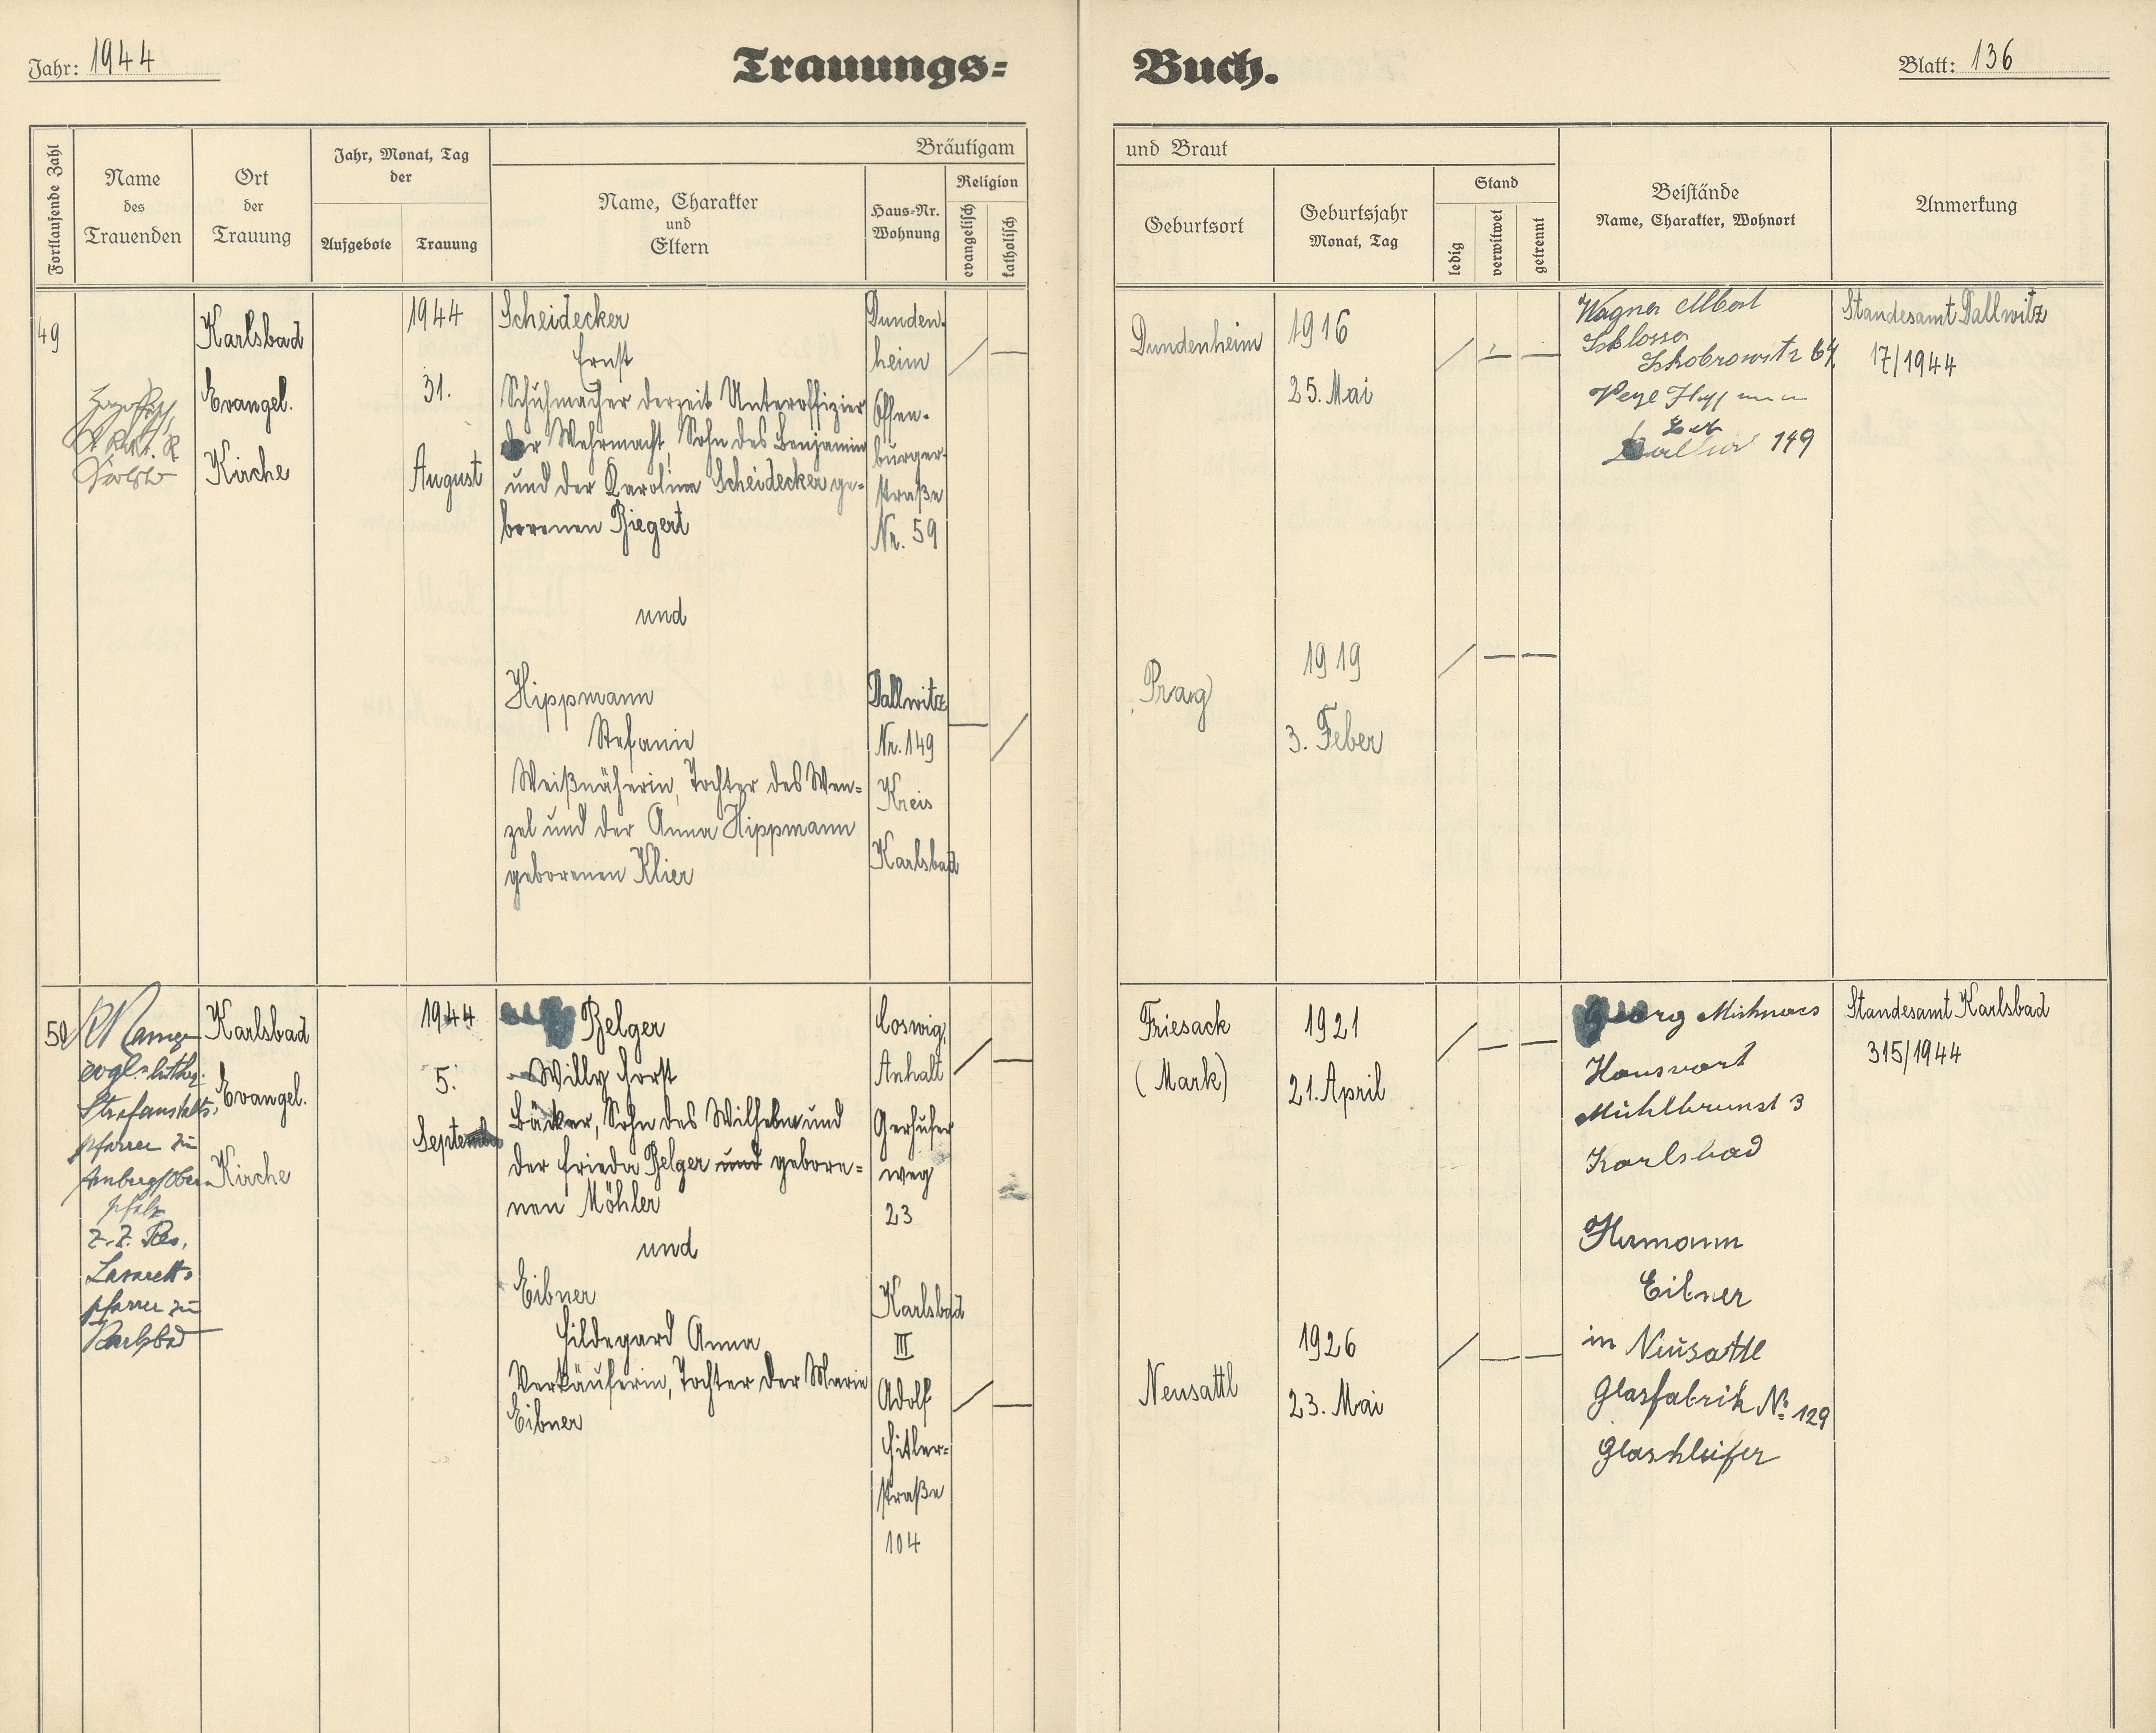 Jahr: 1944
Trauungs-
Buch.
Blatt: 136
Fortlaufende Zahl
Name
des
Trauenden
Ort
der
Trauung
Jahr, Monat, Tag
der
Aufgebote
Trauung
Bräutigam
Name, Charakter
und
Eltern
Haus-Nr.
Wohnung
Religion
evangelisch
katholisch
und Braut
Geburtsort
Geburtsjahr
Monat, Tag
Stand
ledig
verwitwet
getrennt
Beistände
Name, Charakter, Wohnort
Anmerkung
49
Karlsbad
Evangel.
Kirche
1944
31.
August
Scheidecker
Ernst
Schuhmacher derzeit Unteroffizier
der Wehrmacht, Sohn des Benjamin
und der Karolina Scheidecker ge-
borenen Biegert
Dunden-
heim
Offen-
burger-
straße
Nr. 59
Dundenheim
1916
25. Mai
Wagner Albert
Schlosser
64.
149
Standesamt Dallwitz
17/1944
und
Hippmann
Stefanie
Weißnäherin, Tochter des Wen-
zel und der Anna Hippmann
geborenen Klier
Dallwitz
Nr. 149
Kreis
Karlsbad
Prag
1919
3. Feber
50
evgl.-luther.
Strafanstalts-
pfarrer zu
Amberg/Ober-
pfalz
z. Z. Res.
Lazarett-
pfarrer zu
Karlsbad
Karlsbad
Evangel.
Kirche
1944
5.
September
Belger
Willy Horst
Bäcker, Sohn des Wilhelm und
der Frieda Belger und gebore-
nen Möhler
Coswig,
Anhalt
weg
23
Friesack
(Mark)
1921
21. April
Georg
Hauswart
3
Karlsbad
Standesamt Karlsbad
315/1944
und
Eibner
Hildegard Anna
Verkäuferin, Tochter der Marie
Eibner
Karlsbad
III
Adolf
Hitler-
straße
104
Neusattl
1926
23. Mai
Hermann
Eibner
in Neusattl
Glasfabrik No. 129
Glasschleifer